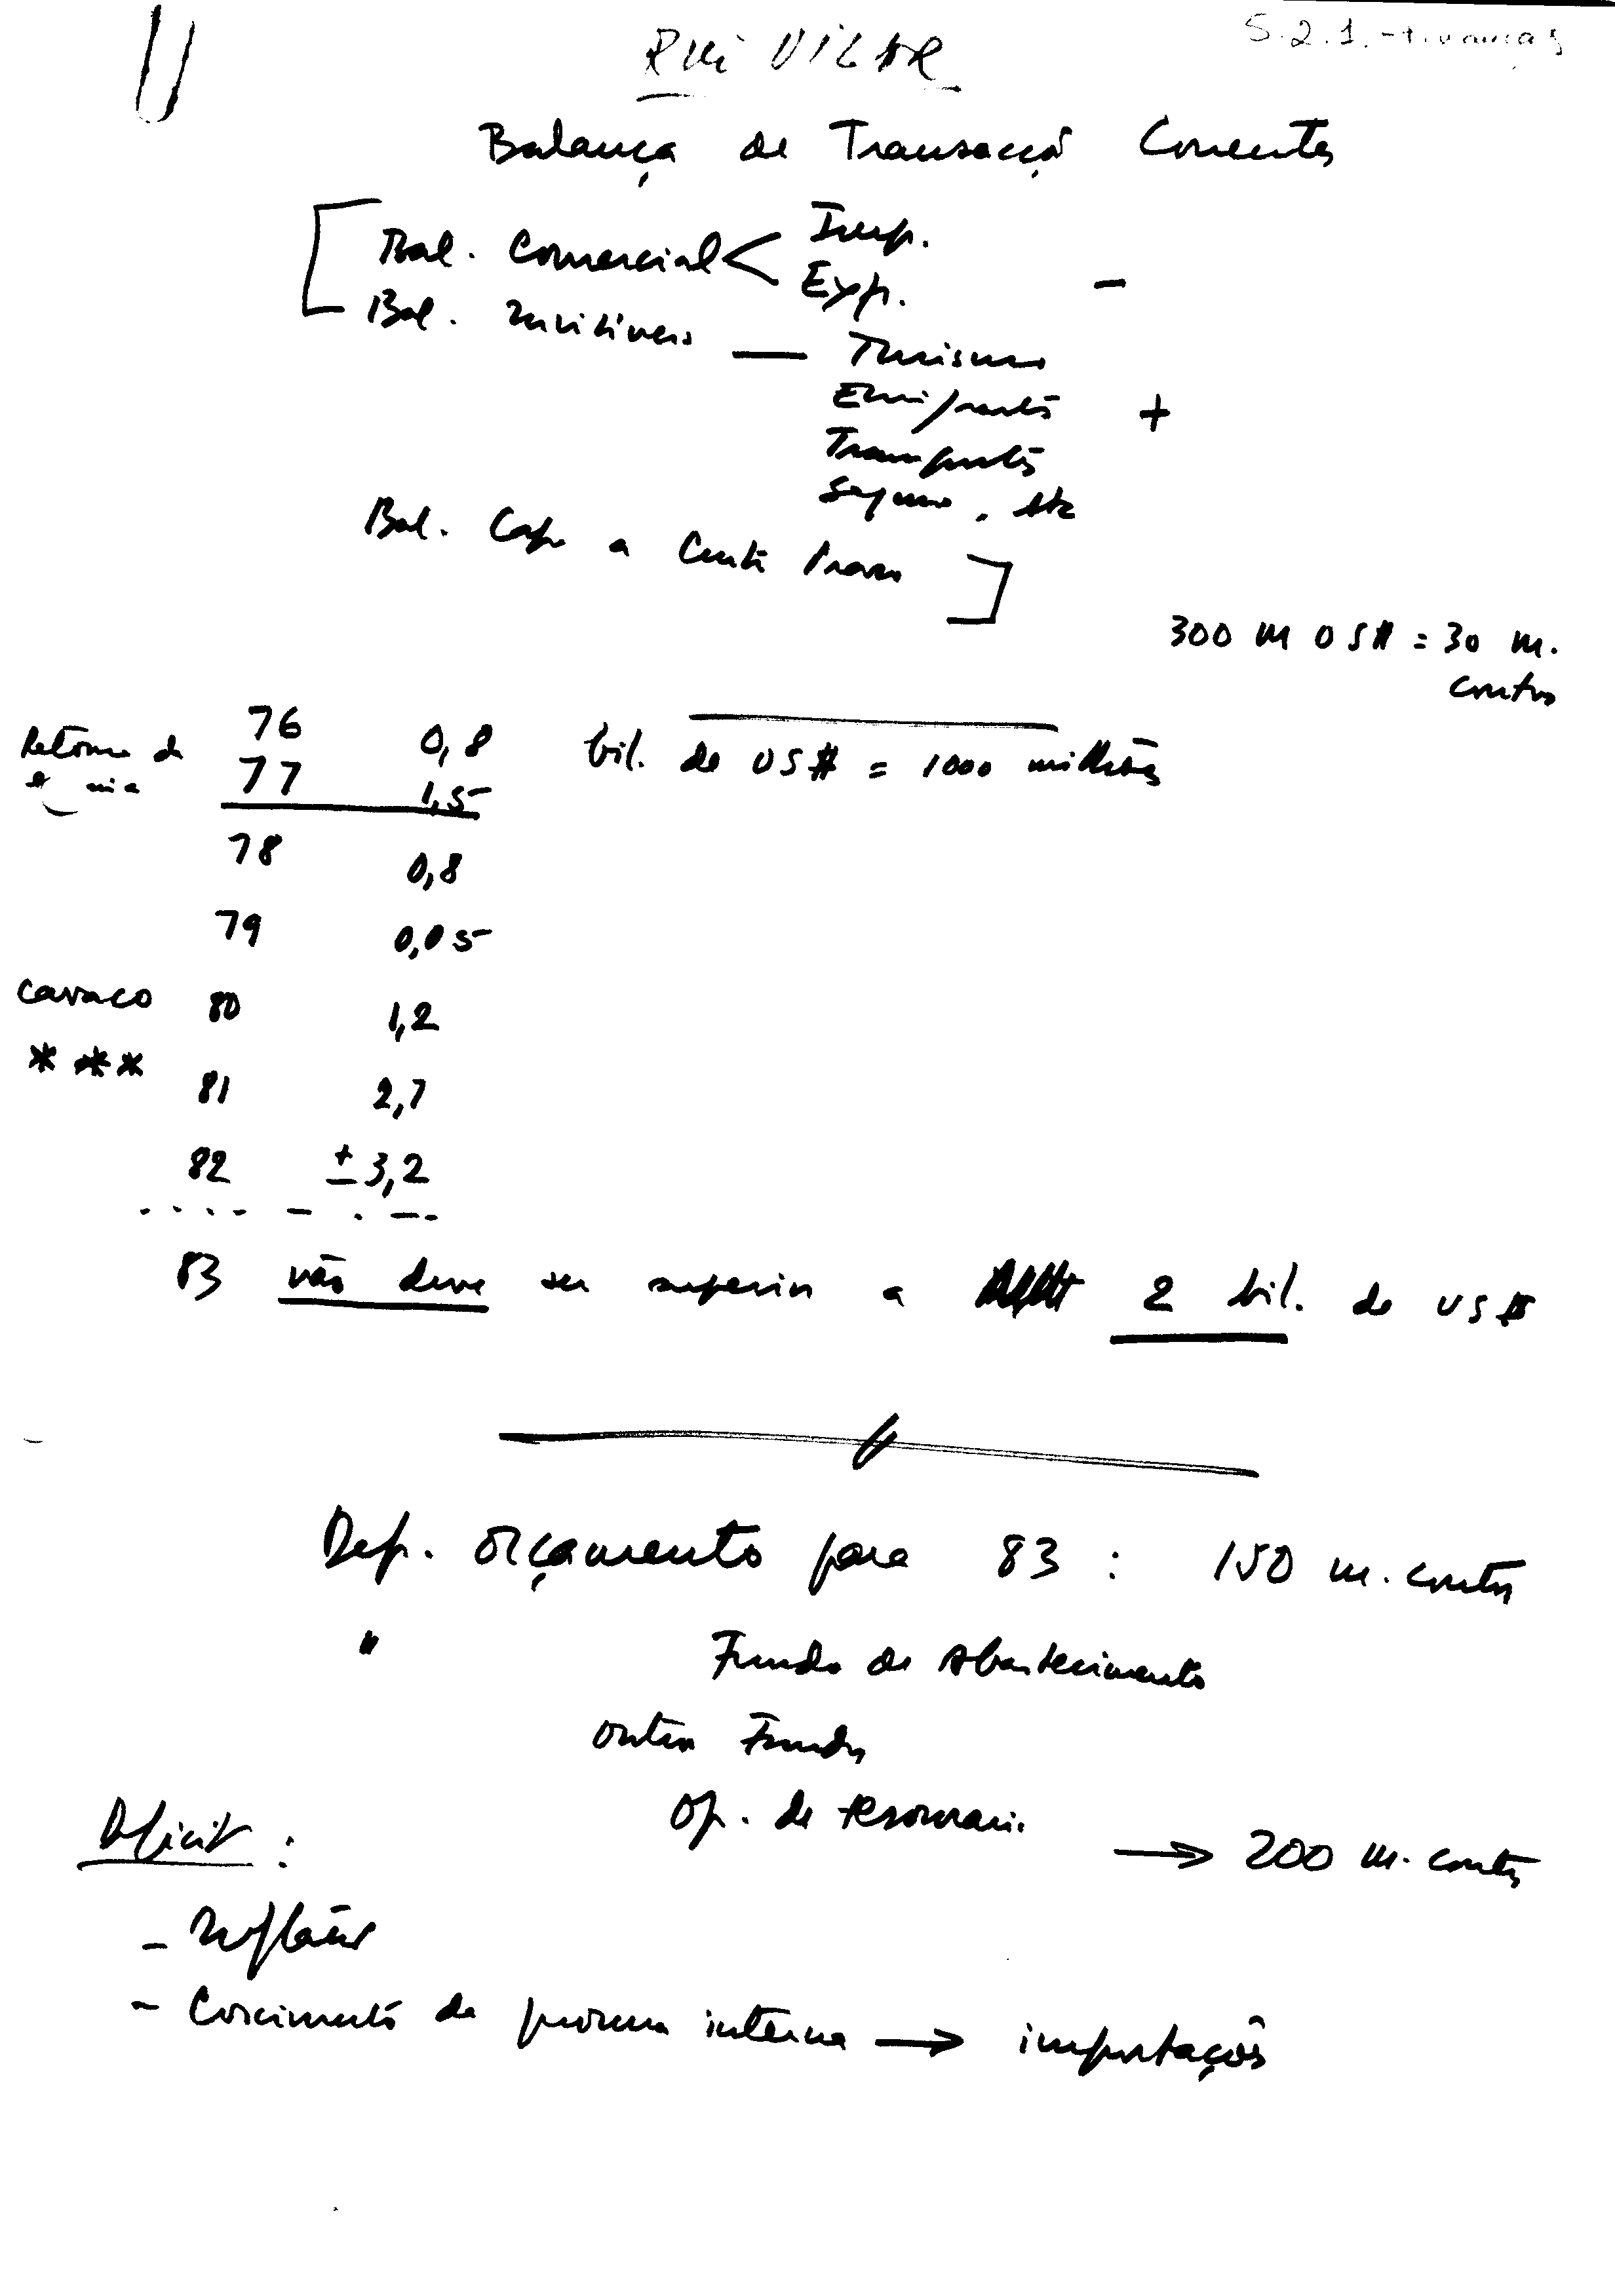 RUI VILAR
5.2.1. - Finanças
Balança de Transacções Correntes
Bal. Comercial < Imp.
Exp. -
Bal. Invisíveis — Turismo
Emigrantes +
Transportes
Seguros, etc
Bal. Cap a Curto Prazo
300 M US$ = 30 m.
contos
Retoma da 76 0,8 bil. de US$ = 1000 milhões
77 1,5
78 0,8
79 0,05
Cavaco 80 1,2
*** 81 2,7
82 ± 3,2
83 não deve ser superior a 2 bil. de US$
Def. orçamento para 83 : 150 m. contos
" Fundo de Abastecimento
outros Fundos
Op. de tesouraria
→ 200 m. contos
Deficit :
- Inflação
- Crescimento da procura interna → importações